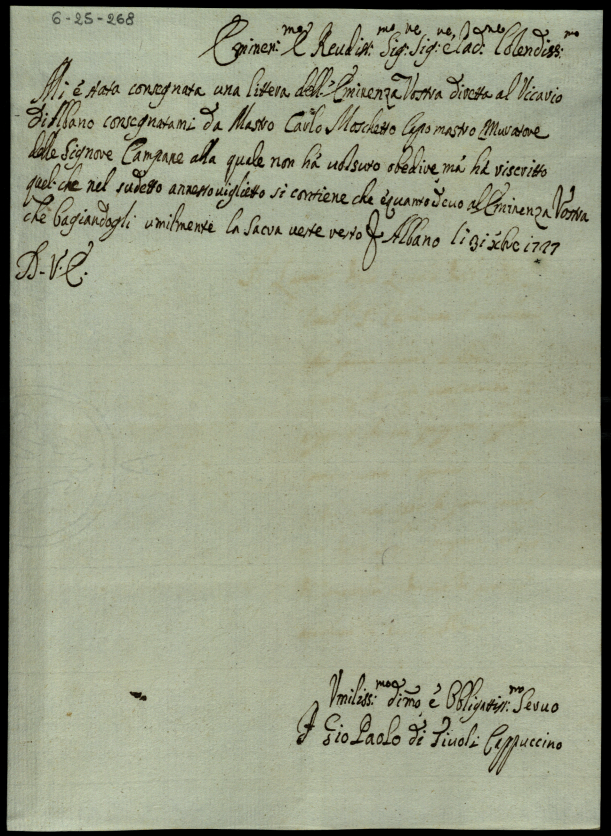 6-25-268
Eminen:mo E Reudiss:mo Sig:re Sig:re e Pad:ne Colendiss:mo
Mi è stata consegnata una littera dell'Eminenza Vostra diretta al Vicario
di Albano consegnatami da Mastro Carlo Moschetto Capo mastro Muratore
delle Signore Campane alla quale non hà uolsuto obedire, mà hà riscritto
quel che nel sudetto annesso viglietto si contiene che è quanto deuo all'Eminenza Vostra
che bagiandogli umilmente la Sacra ueste resto
Albano li 31 Xbre 1727
D. V. E.
Vmiliss:mo di:mo è Obligatiss:mo Seruo
F Gio Paolo di Tiuoli Cappuccino